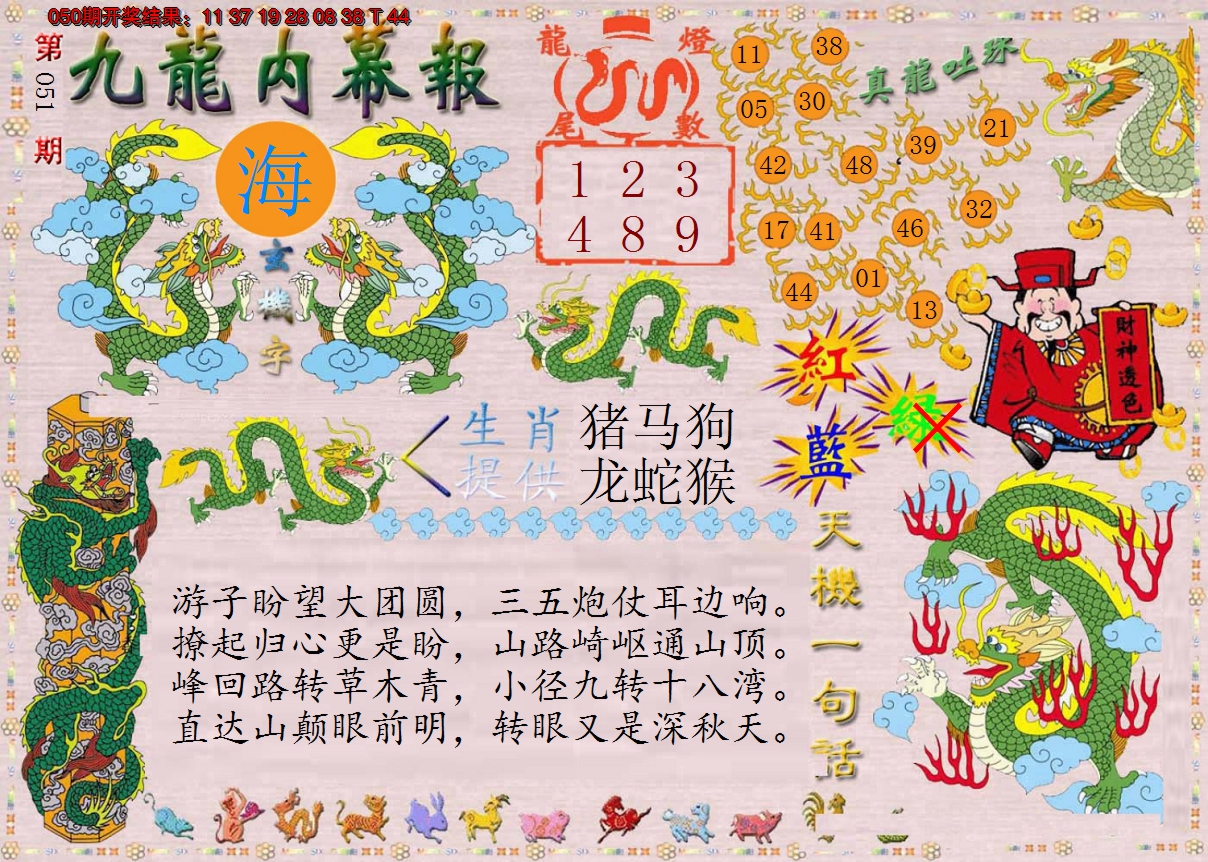 050期开奖结果：11 37 19 28 06 38 T 44
第051期
九龍内幕報
海
玄機字
龍燈尾數
1 2 3
4 8 9
真龍吐珠
11
38
05
30
42
48
39
21
17
41
46
32
44
01
13
財神透色
紅
綠
藍
生肖提供
猪马狗
龙蛇猴
游子盼望大团圆，三五炮仗耳边响。
撩起归心更是盼，山路崎岖通山顶。
峰回路转草木青，小径九转十八湾。
直达山颠眼前明，转眼又是深秋天。
天機一句話